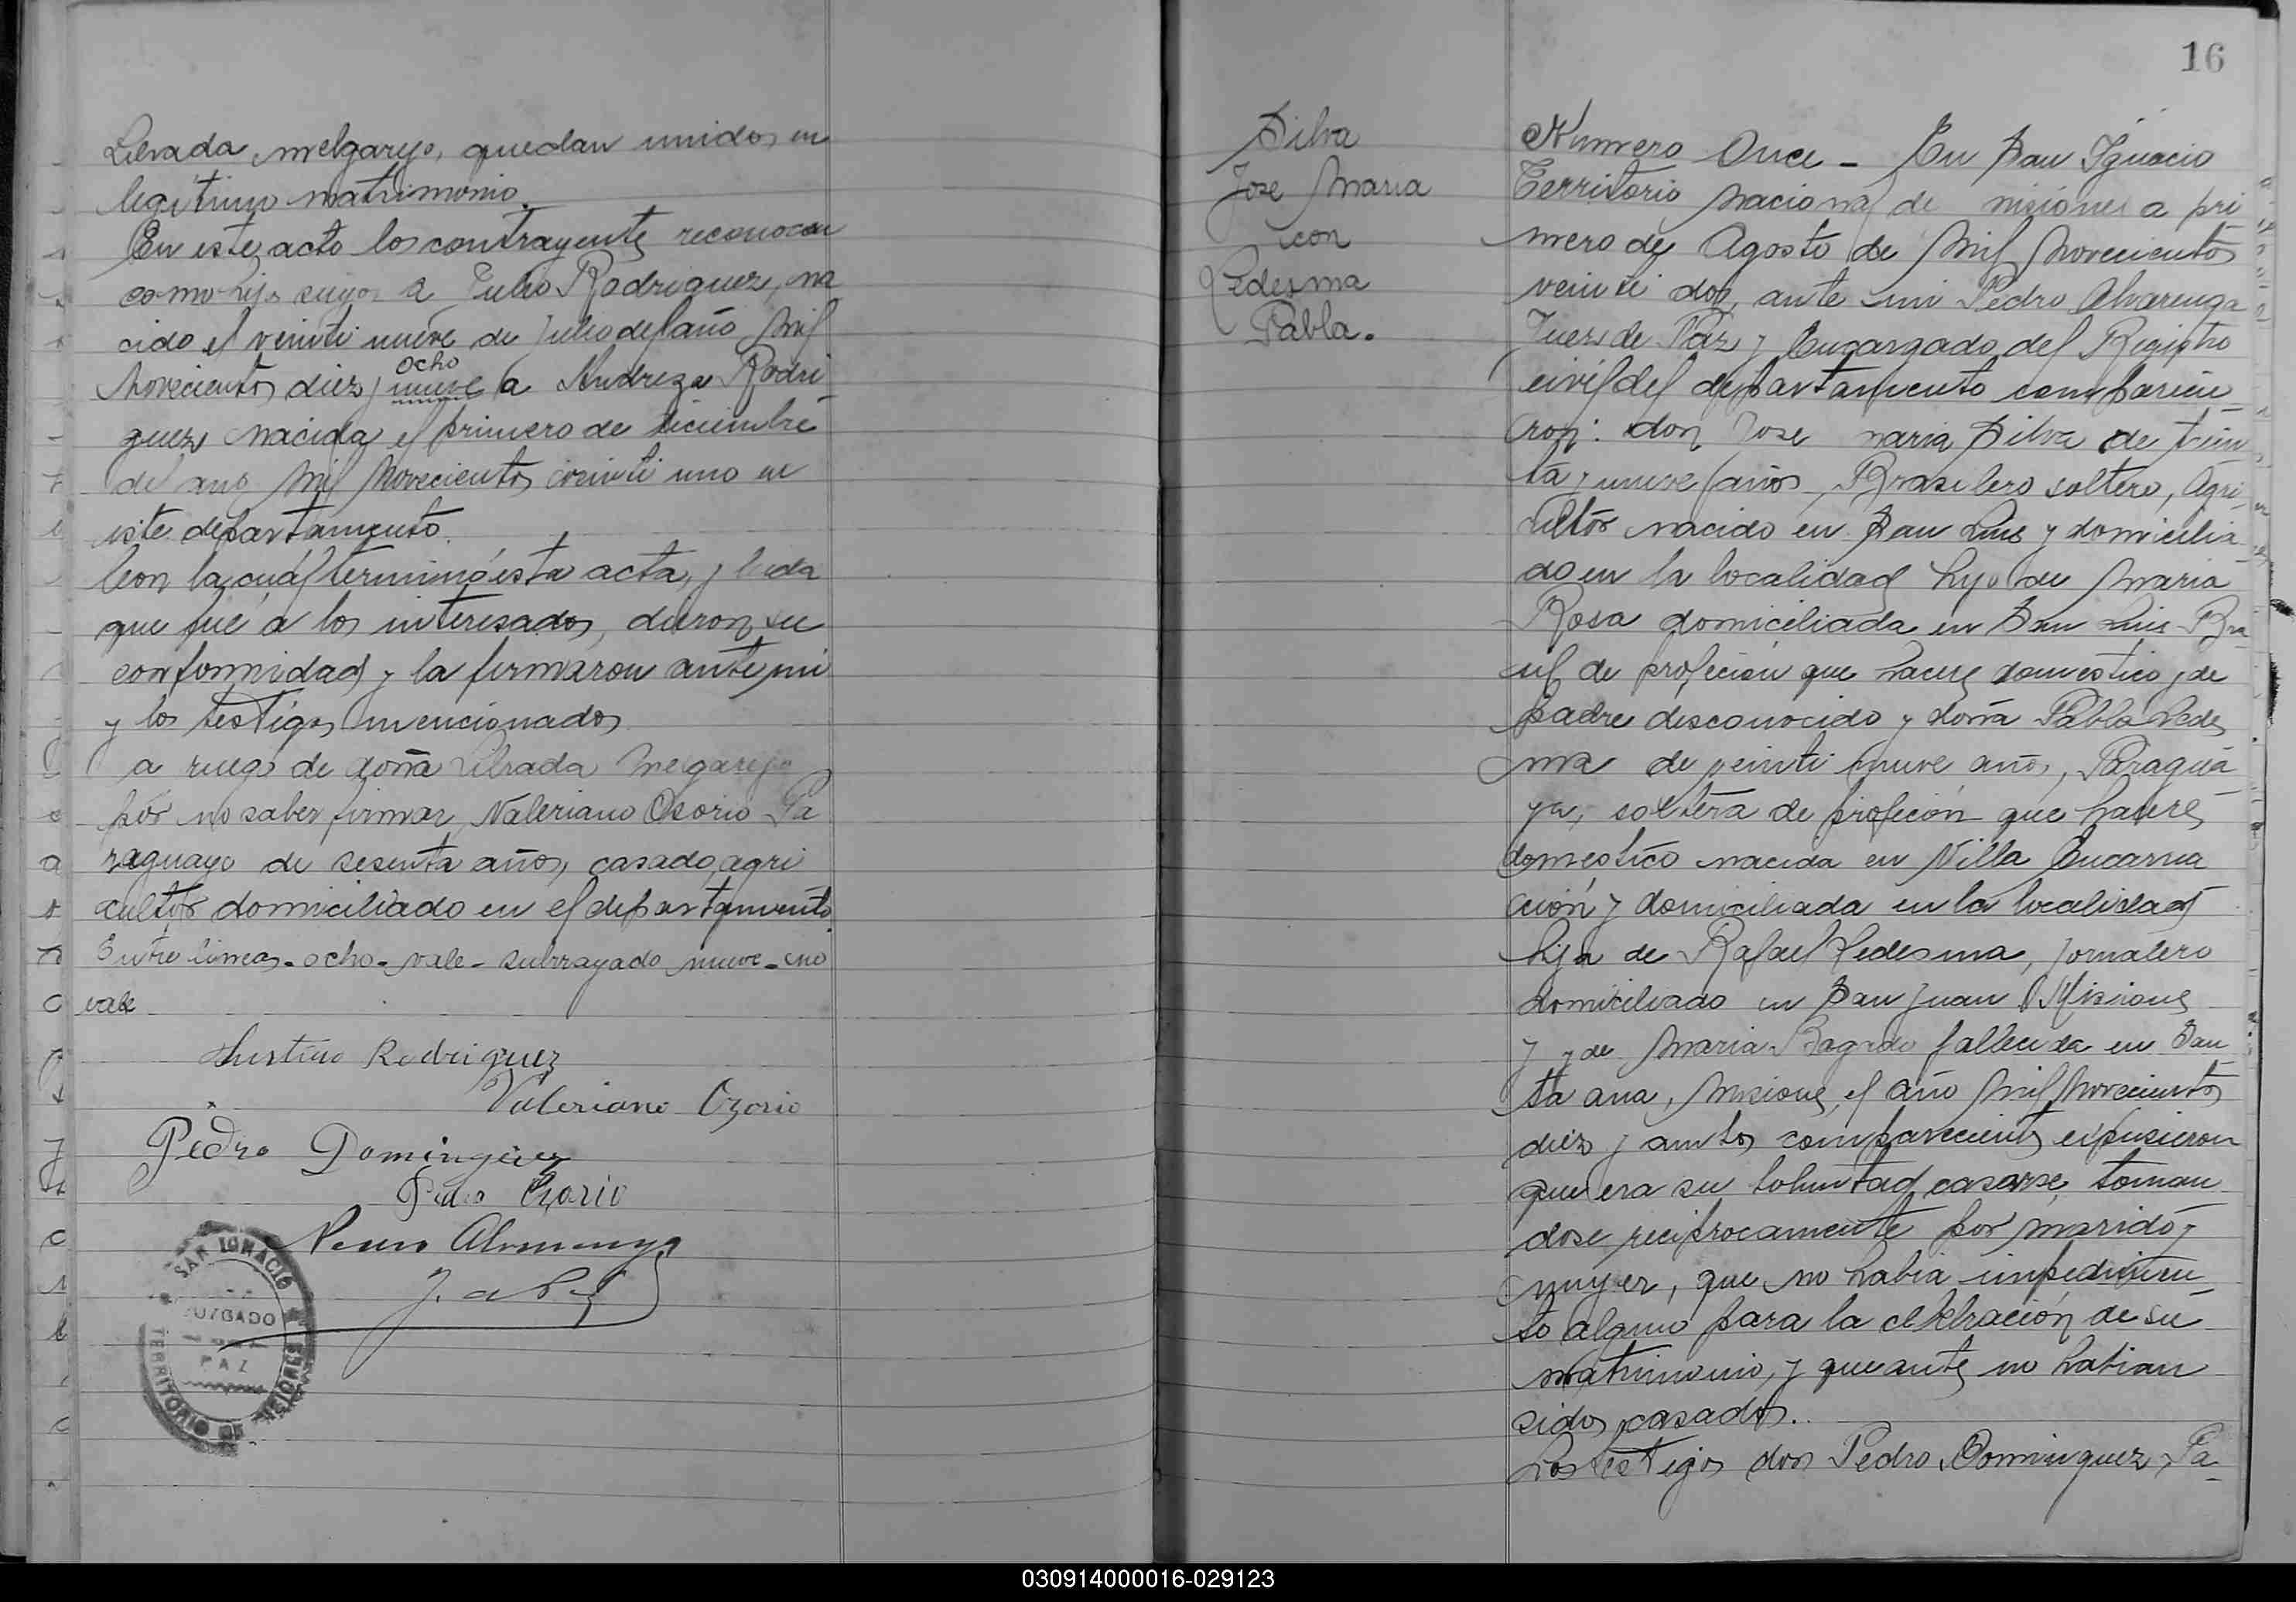 Librada melgarejo, quedan unidos en
legítimo matrimonio.
En este acto los contrayentes reconocen
como hijos suyos a Julio Rodriguez, na
cido el veinti nueve de Julio del año Mil
ocho
Novecientos diez y nueve a Andreza Rodri
guez nacida el primero de diciembre
del año Mil Novecientos veinti uno en
este departamento.
Con la cuál terminó esta acta, y leida
que fué a los interesados, dieron su
conformidad y la firmaron ante mi
y los testigos mencionados
a ruego de doña Librada Melgarejo
por no saber firmar, Valeriano Osorio Pa
raguayo de sesenta años, casado, agri
cultor domiciliado en el departamento.
Entre lineas - ocho - vale - subrrayado nueve - no
vale
Rodriguez
Valeriano Ozorio
Pedro Dominguez
Pedro Ozorio
Pedro Alvarenga
J. de P.
SAN IGNACIO
JUZGADO
DE
PAZ
TERRITORIO DE MISIONES
16
Silva
Jose Maria
con
Ledesma
Pabla.
Numero Once - En San Ignacio
Territorio Nacional de misiones a pri
mero de Agosto de Mil Novecientos
veinti dos, ante mi Pedro Alvarenga
Juez de Paz y Encargado del Registro
civil del departamento comparecie
ron: don Jose maria Silva de trein
ta y nueve años, Brasilero soltero, Agri
cultor nacido en San Luis y domicilia
do en la localidad hijo de Maria
Rosa domiciliada en San Luis Bra
sil de profeción que haceres domestico y de
padre desconocido y doña Pabla Ledes
ma de veinti nueve años, Paragua
ya, soltera de profeción que haceres
domestico nacida en Villa Encarna
ción y domiciliada en la localidad
hija de Rafael Ledesma, jornalero
domiciliado en San Juan Misiones
y de Maria fallecida en San
ta ana, Misiones, el año Mil Novecientos
diez y ambos comparecientes expusieron
que era su voluntad casarse, toman
dose reciprocamente por marido y
mujer, que no habia impedimen
to alguno para la celebración de su
matrimonio, y que antes no habian
sidos casados..
Los testigos don Pedro Dominguez, Pa
030914000016-029123